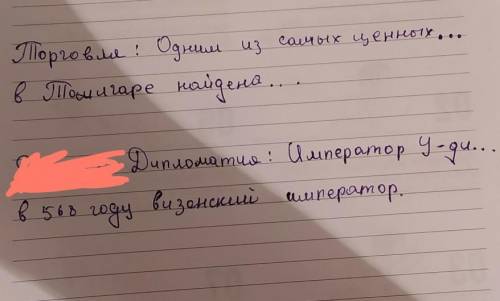 Торговля: Одним из самых ценных...
в Томигаре найдена...
Дипломатия: Император У-ди...
в 568 году визанский император.